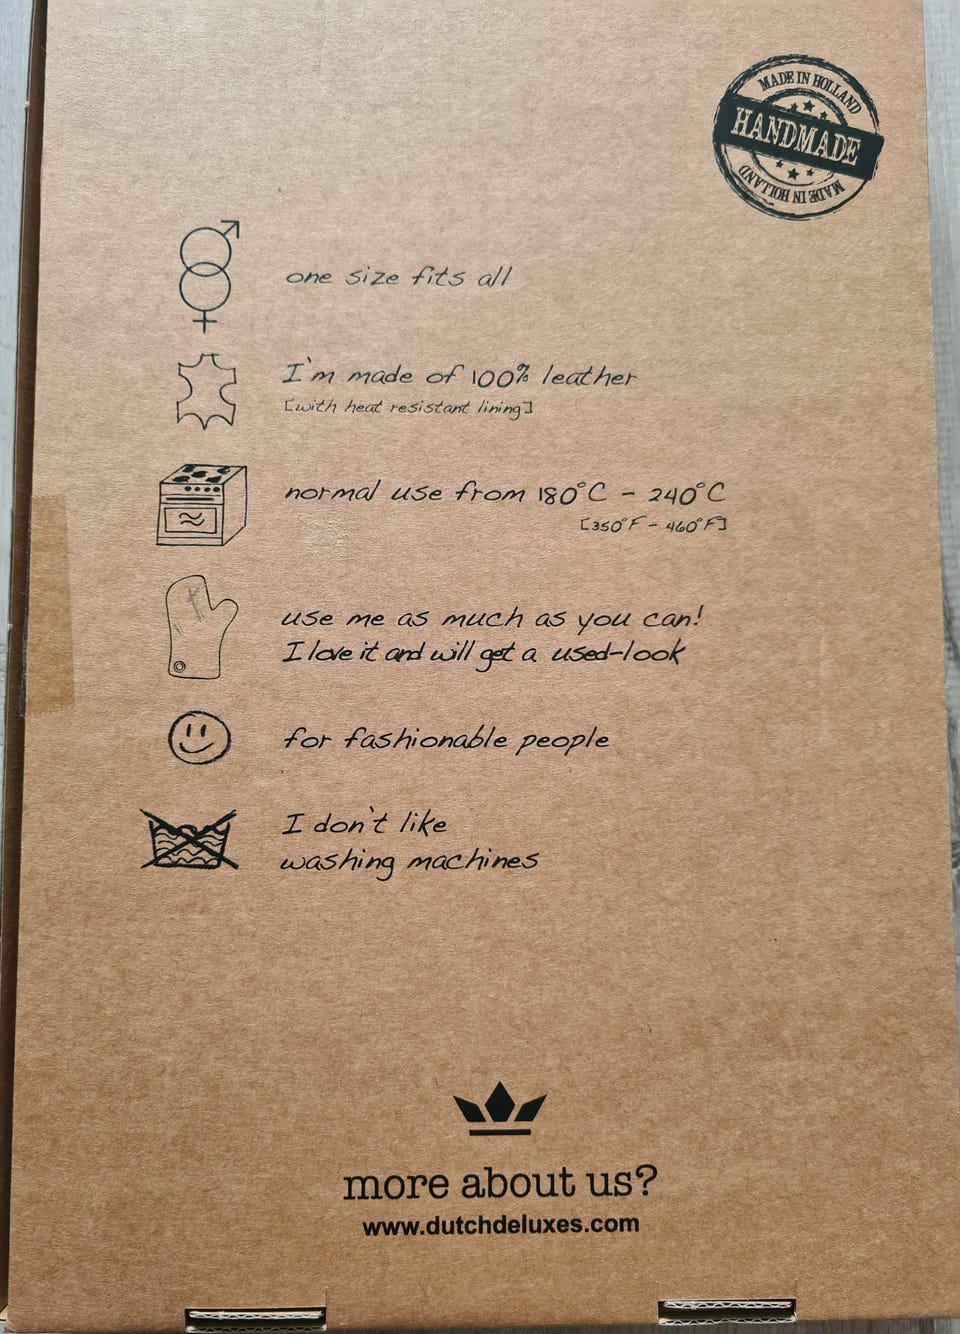 MADE IN HOLLAND
HANDMADE
MADE IN HOLLAND
one size fits all
I'm made of 100% leather
[with heat resistant lining]
normal use from 180°C - 240°C
[350°F - 460°F]
use me as much as you can!
I love it and will get a used-look
for fashionable people
I don't like
washing machines
more about us?
www.dutchdeluxes.com